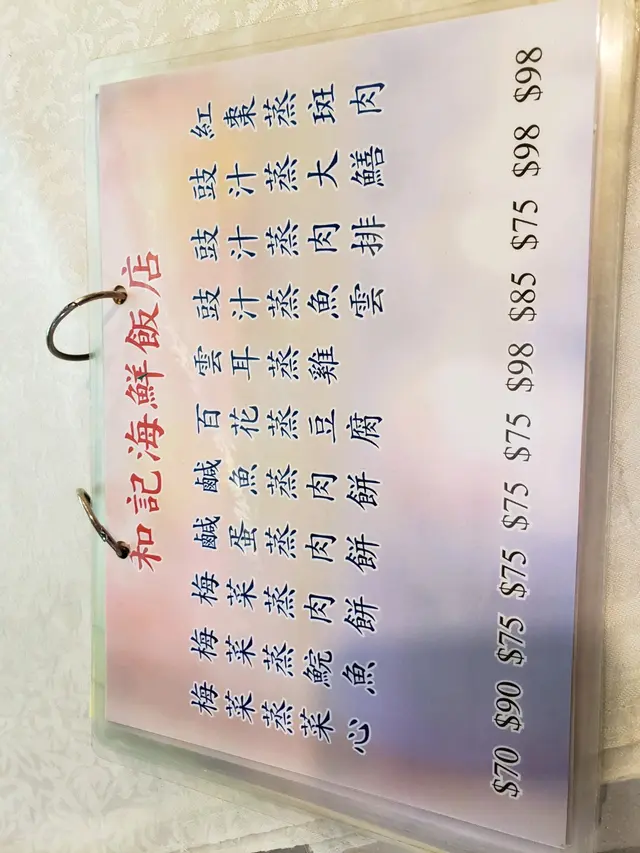 和記海鮮飯店
紅棗蒸斑肉
豉汁蒸大鱔
豉汁蒸肉排
豉汁蒸魚雲
雲耳蒸雞
百花蒸豆腐
鹹魚蒸肉餅
鹹蛋蒸肉餅
梅菜蒸肉餅
梅菜蒸鯇魚
梅菜蒸菜心
$70 $90 $75 $75 $75 $75 $98 $85 $75 $98 $98